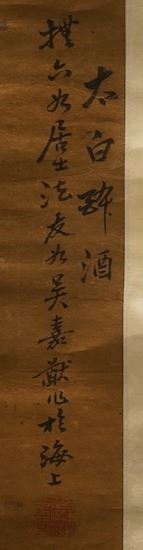 太白醉酒
撫六如居士法友如吴嘉猷作於海上